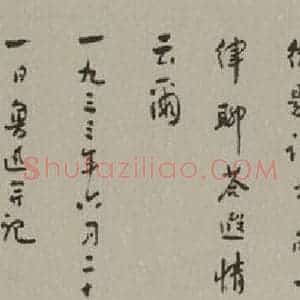 律聊荅遐情
云爾
一九三三年六月二十
一日魯迅并記
Shufaziliao.COM